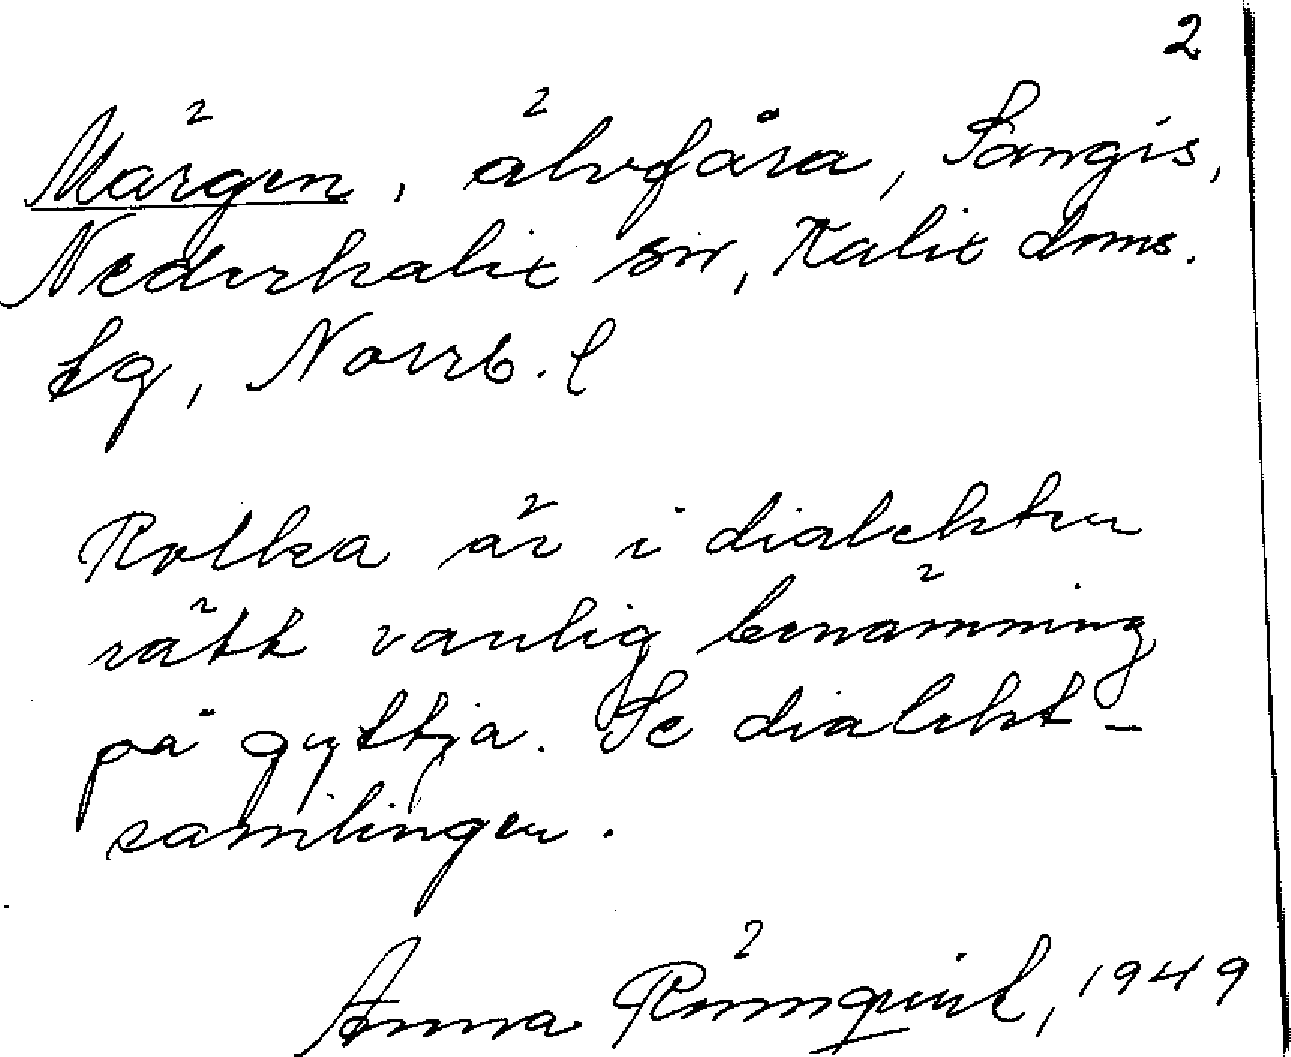 2
Märgen, älvfåra, Sangis,
Nederkalix sn, Kalix doms.
lg, Norrb. l
Rolka är i dialekten
rätt vanlig benämning
på gyttja. Se dialekt-
samlingen.
Anna Rönnqvist, 1949